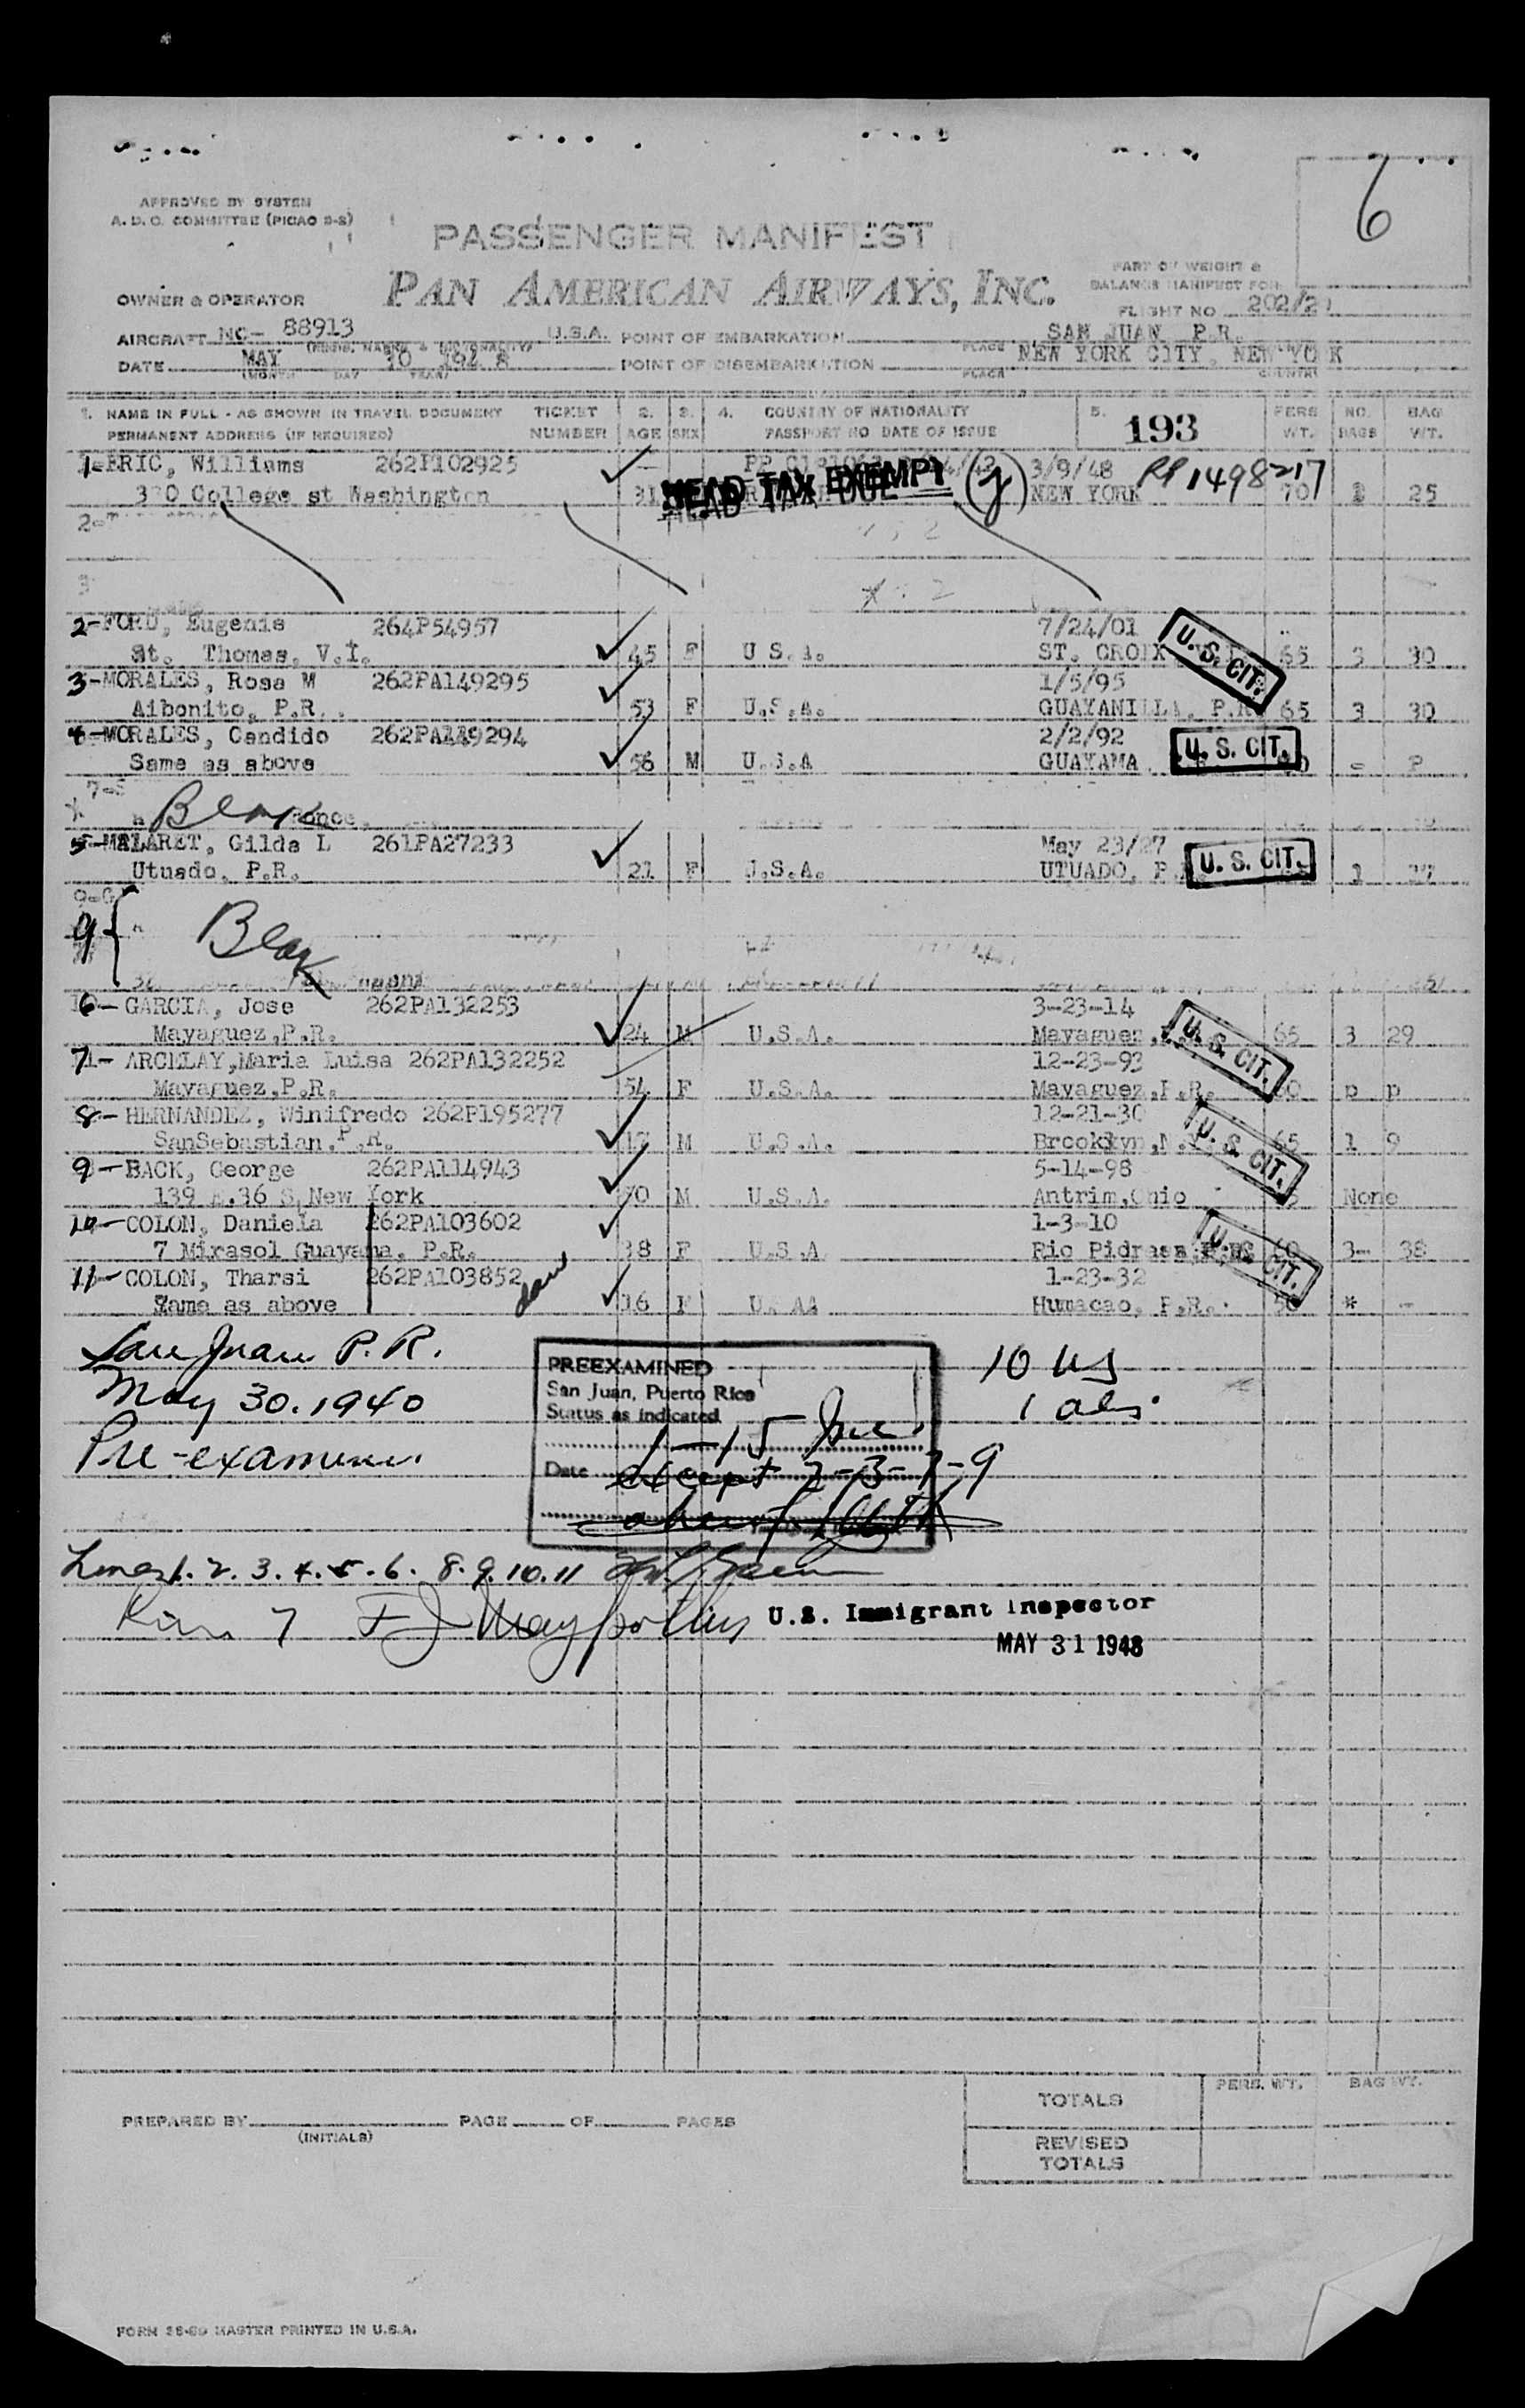 6
APPROVED BY SYSTEM
A. D. C. COMMITTEE (PICAO S-2)
PASSENGER MANIFEST
PAN AMERICAN AIRWAYS, INC.
PART OF WEIGHT &
BALANCE MANIFEST FOR
OWNER & OPERATOR
FLIGHT NO 202/
AIRCRAFT NC- 88913 U.S.A. POINT OF EMBARKATION SAN JUAN P.R.
PLACE
DATE MAY 1948 POINT OF DISEMBARKATION NEW YORK CITY, NEW YORK
(MONTH DAY YEAR) PLACE COUNTRY
1. NAME IN FULL - AS SHOWN IN TRAVEL DOCUMENT TICKET 2. 3. 4. COUNTRY OF NATIONALITY 5. 193 PERS NO. BAG
PERMANENT ADDRESS (IF REQUIRED) NUMBER AGE SEX PASSPORT NO DATE OF ISSUE WT. BAGS WT.
1- ERIC, Williams 262P102925 3/9/48 PP 1498217
College st Washington 31 HEAD TAX EXEMPT (J) NEW YORK 70 25
2-FORD, Eugenie 264P54957 7/24/01
St. Thomas, V.I. 45 F U S.A. ST. CROIX U. S. CIT. 65 3 30
3-MORALES, Rosa M 262PA149295 1/5/95
Aibonito, P.R. 53 F U.S.A. GUAYANILLA, P.R. 65 3 30
4-MORALES, Candido 262PA149294 2/2/92
Same as above 56 M U.S.A GUAYAMA U. S. CIT. - P
Blank
5-MALARET, Gilda L 261PA27233 May 23/27
Utuado, P.R. 21 F U.S.A. UTUADO, P. U. S. CIT. 1 27
9 Blank
6- GARCIA, Jose 262PA132253 3-23-14
Mayaguez,P.R. 24 M U.S.A. Mayaguez, U. S. CIT. 65 3 29
7- ARCELAY,Maria Luisa 262PA132252 12-23-93
Mayaguez,P.R. 54 F U.S.A. Mayaguez,P.R. 60 p p
8- HERNANDEZ, Winifredo 262P195277 12-21-30
SanSebastian,P.R. M U.S.A. Brooklyn,N.Y. U. S. CIT. 65 1 9
9- BACK, George 262PA114943 5-14-98
139 E.36 S,New York 50 M U.S.A. Antrim,Ohio None
10-COLON, Daniela 262PA103602 1-3-10
7 Mirasol Guayama, P.R. 38 F U.S.A Rio Piedras U. S. CIT. 60 3- 38
11-COLON, Tharsi 262PA103852 1-23-32
Same as above 16 F U.S AA Humacao, P.R. 50 * -
San Juan P. R.
May 30. 1940
Pre-examined
PREEXAMINED
San Juan, Puerto Rico
Status as indicated
1-15 Inc
Date except 2-3-7-9
10 US
1 alien
Lines 1. 2. 3. 4. 5. 6. 8. 9. 10. 11
7
U.S. Immigrant Inspector
MAY 31 1948
PREPARED BY PAGE OF PAGES
(INITIALS)
PERS. WT. BAG WT.
TOTALS
REVISED
TOTALS
FORM 28-60 MASTER PRINTED IN U.S.A.